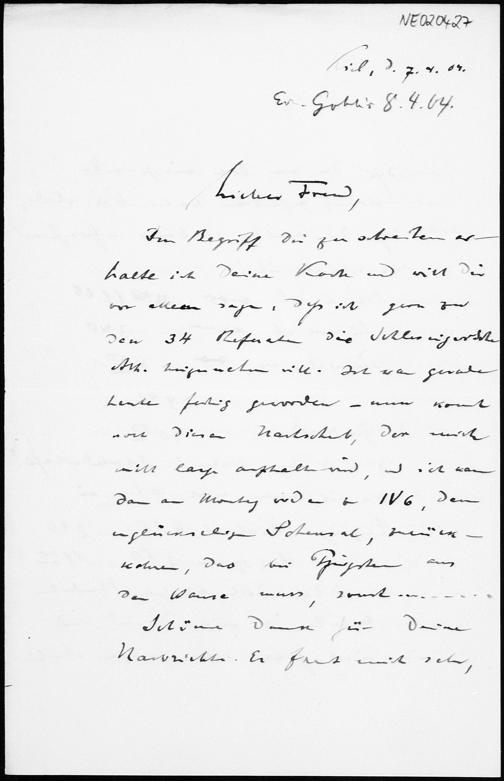 NE020427
Kiel, d. 7. 4. 04.
8.4.04.
Lieber Freund,
Im Begriff Dir zu schreiben er-
halte ich Deine Karte und will Dir
vor allem sagen, dass ich gern zu
den 34 Referaten die
will. Ich war gerade
heute fertig geworden – nun kommt
noch dieser Nachschub, der mich
nicht lange aufhalten wird, und ich kann
dann am Montag wieder zu IV6, dem
unglückseligen Scheusal, zurück-
kehren, das bis Pfingsten aus
dem Hause muss, sonst
Schönen Dank für Deine
Nachrichten. Es freut mich sehr,